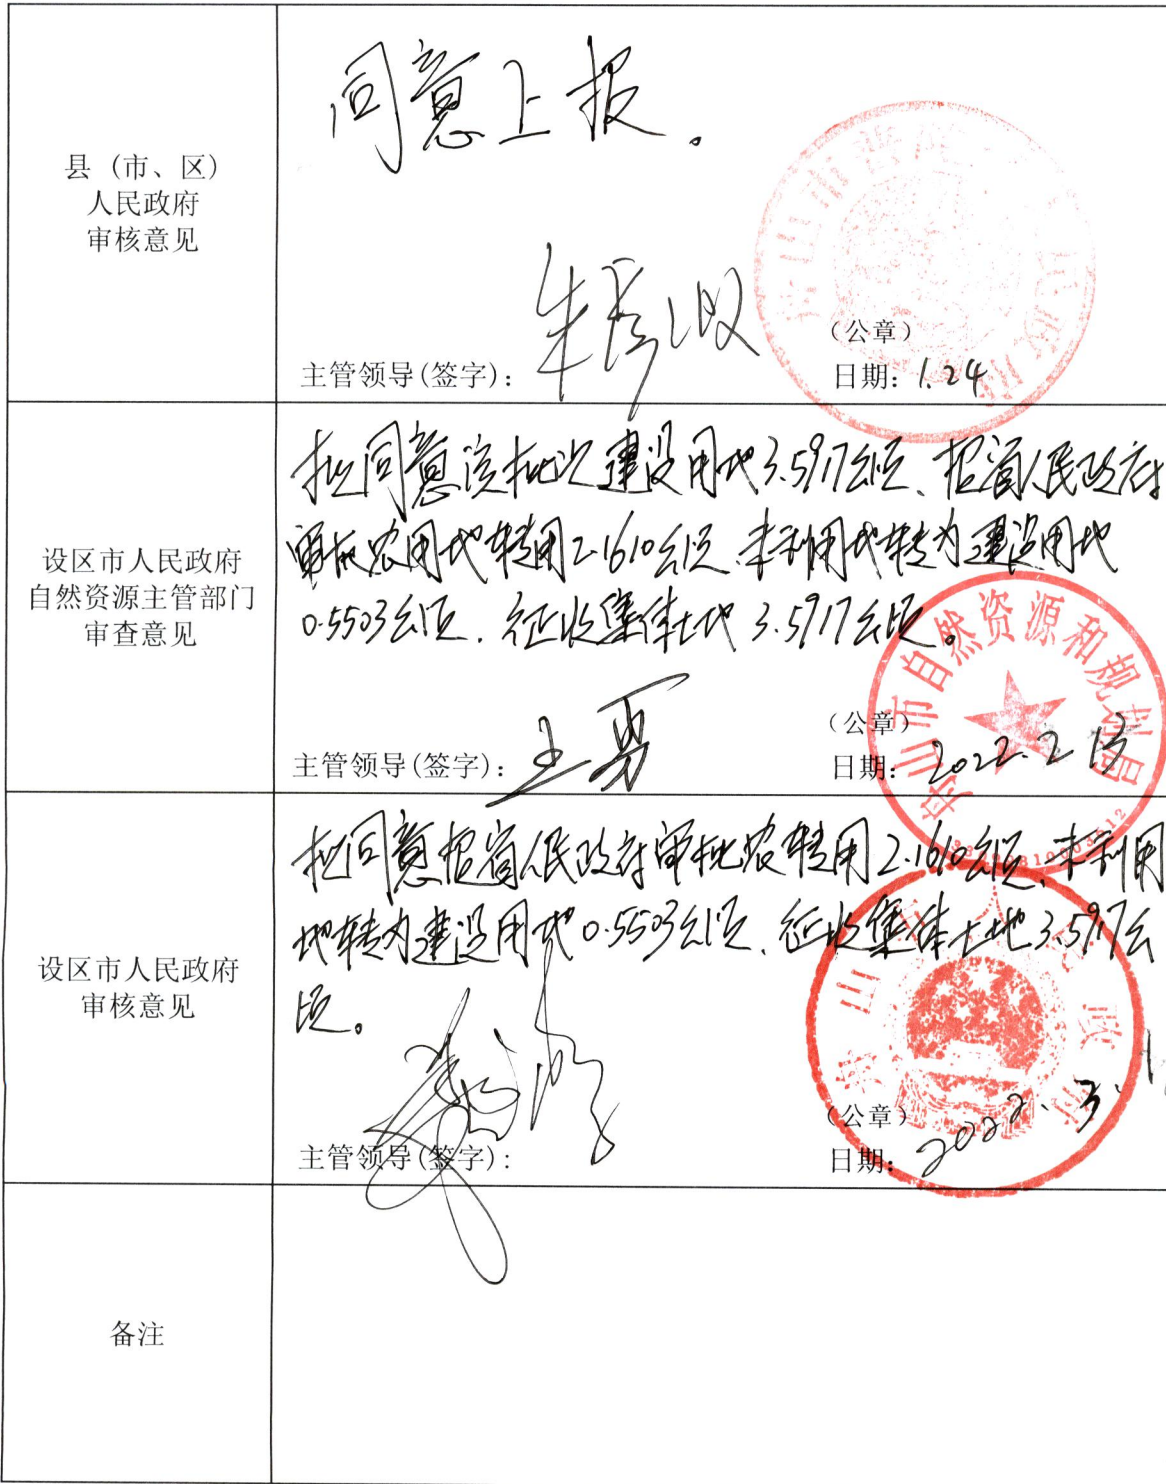 县（市、区）
人民政府
审核意见
同意上报。
主管领导(签字):
（公章）
日期: 1.24
设区市人民政府
自然资源主管部门
审查意见
拟同意该批次建设用地3.5917公顷、报省人民政府
审批农用地转用2.1610公顷、未利用地转为建设用地
0.5503公顷、征收集体土地 3.5917公顷。
主管领导(签字): 王勇
（公章）
日期: 2022.2
山市自然资源和规划局
设区市人民政府
审核意见
拟同意报省人民政府审批农转用2.1610公顷、未利用
地转为建设用地0.5503公顷、征收集体土地3.5917公
顷。
主管领导(签字):
（公章）
日期: 2022.3.
备注